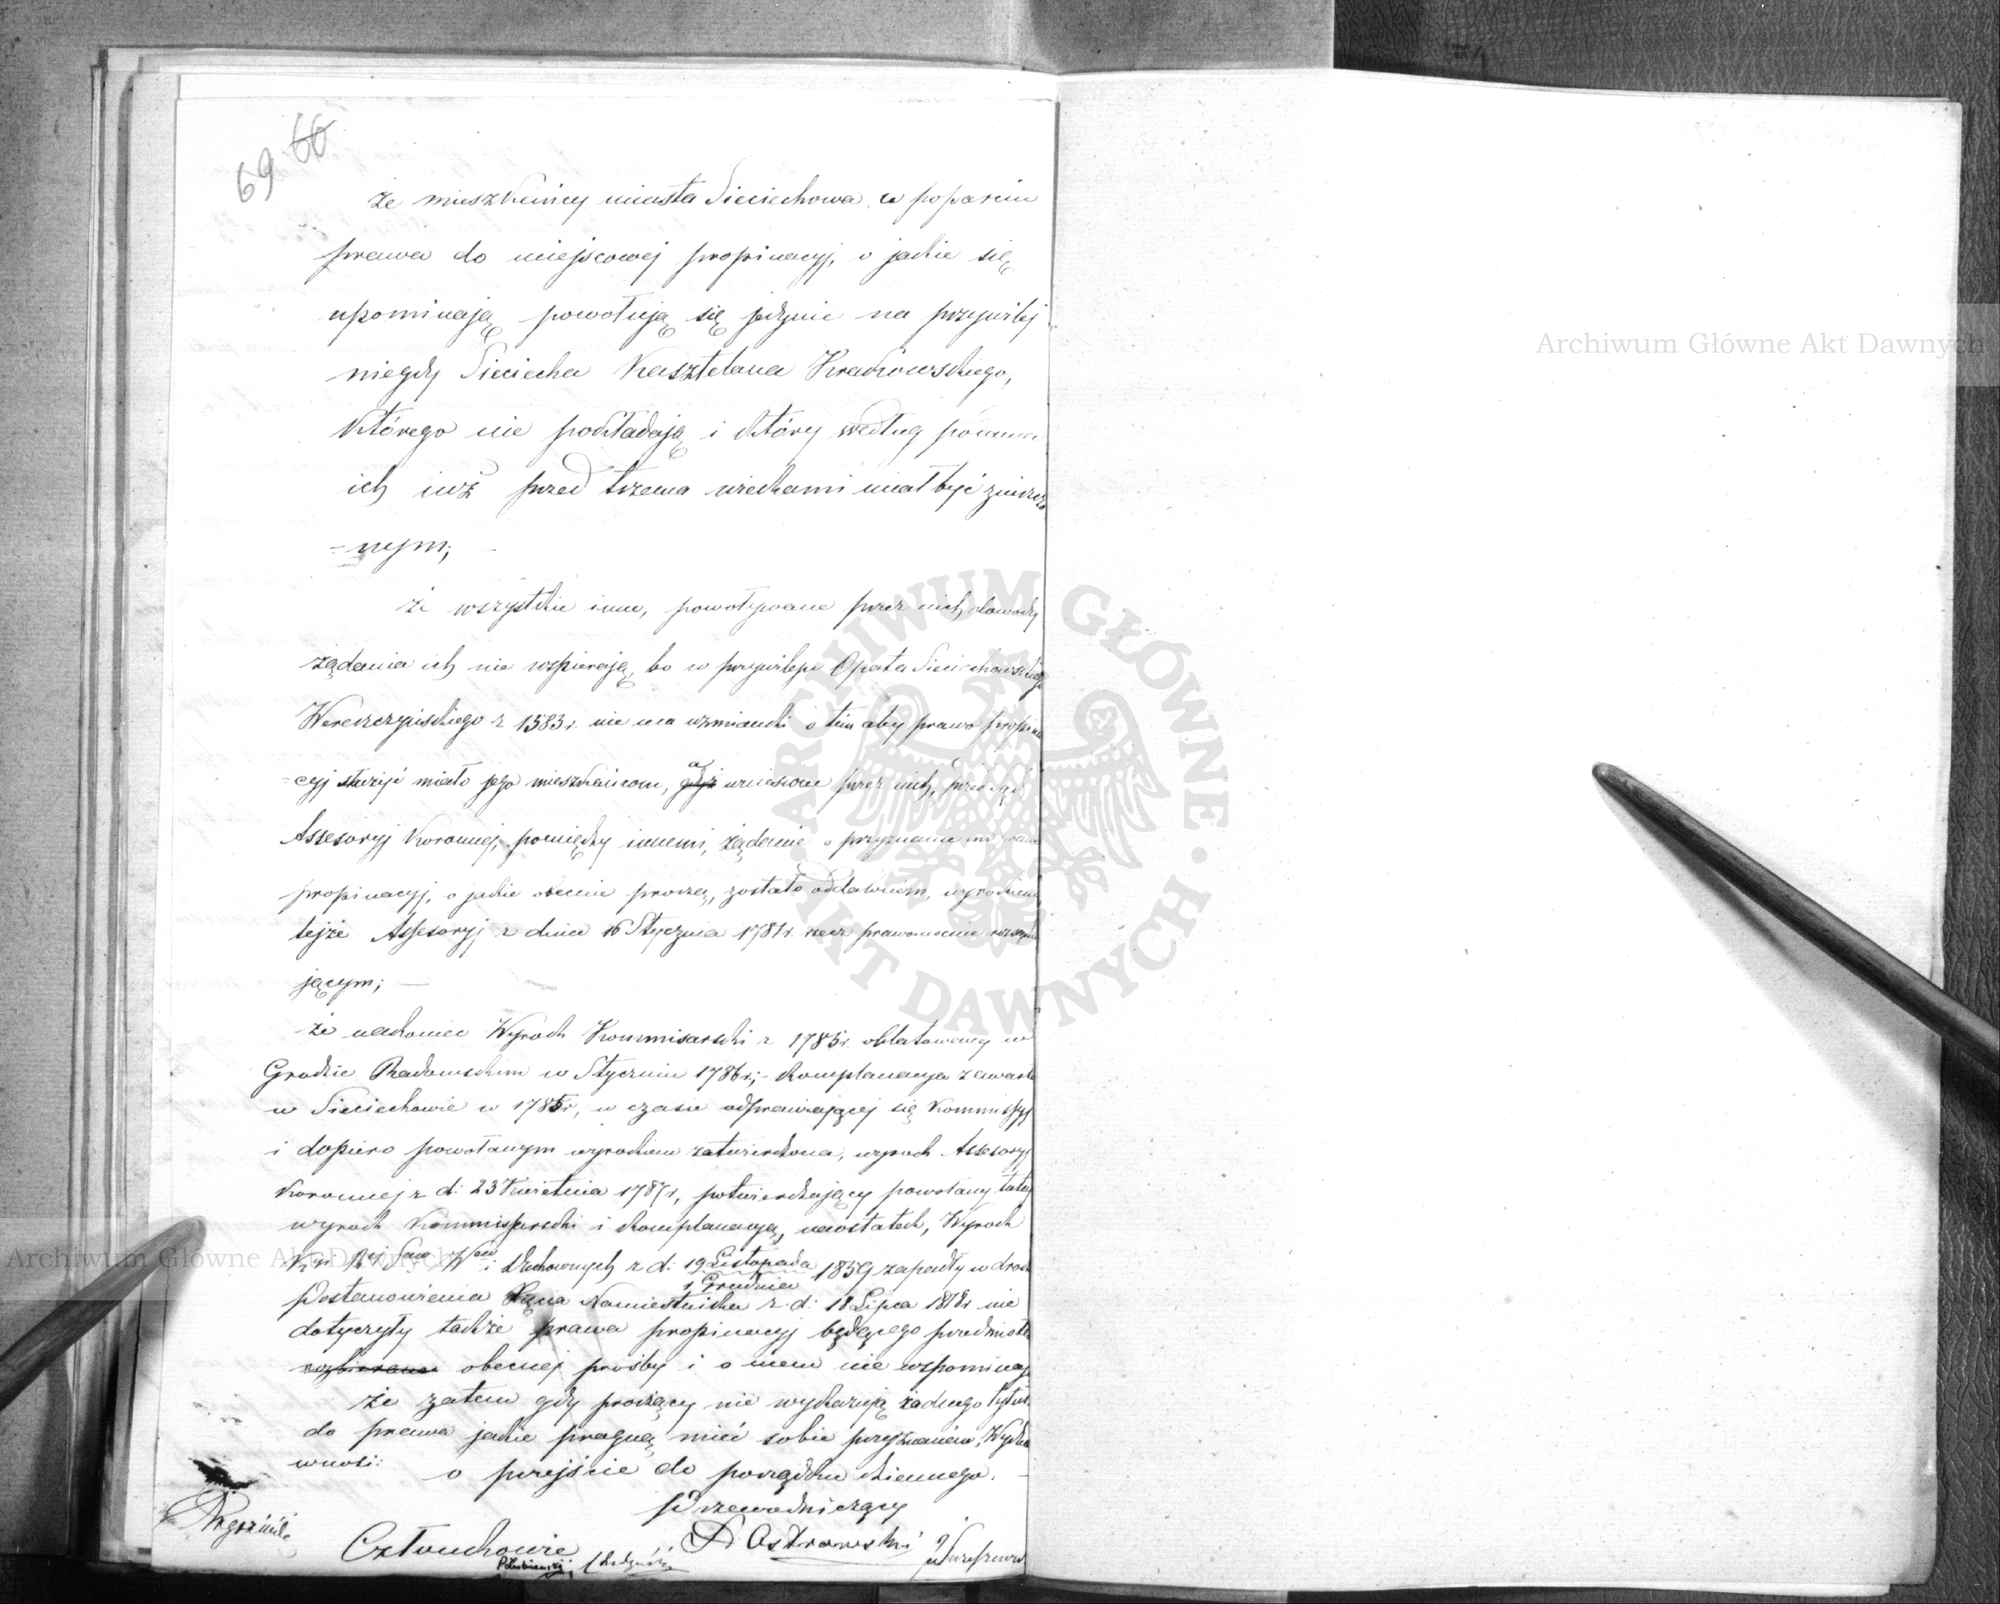 69 66
że mieszkańcy miasta Sieciechowa w poparciu
prawa do miejscowej propinacyj, o jakie się
upominają powołują się jedynie na przywilej
niegdy Sieciecha Kasztelana Krakowskiego,
którego nie pokładają i który według
ich już przed trzema wiekami miał być zniszczo
-nym;
że wszystkie inne, powoływane przez nich dowody
żądania ich nie wspierają, bo w przywileju Opata Sieciechowskiego
Wereszczyńskiego z 1583 r. nie ma wzmianki o tem aby prawo propina
-cyj służyć miało jego mieszkańcom, a wniesione przez nich, przed Sąd
Assesoryj Koronnej, pomiędzy innemi, żądanie o przyznanie im prawa
propinacyj, o jakie obecnie proszą, zostało oddalonem, wyrokiem
tejże Assesoryj z dnia 16 Stycznia 1787 r. rzecz prawomocnie rozstrzyga
jącym;
że nakoniec Wyrok Kommisarski z 1785 r. oblatowany w
Grodzie Radomskim w Styczniu 1786 r; - Komplanacya zawarta
w Sieciechowie w 1785 r, w czasie odprawiającej się Kommissyj
i dopiero powołanym wyrokiem zatwierdzona, wyrok Assesoryj
Koronnej z d: 23 Kwietnia 1787 r, potwierdzający powołany tutaj
wyrok Kommissarski i Komplanacyą, naostatek, Wyrok
i Duchownych z d: 19 Listopada 1859 zapadły w drodze
1 Grudnia
Postanowienia Xięcia Namiestnika z d: 18 Lipca 1818 r nie
dotyczyły także prawa propinacyj będącego przedmiotem
obecnej prośby i o niem nie wspominają
że zatem gdy proszący nie wykazują żadnego tytułu
do prawa jakie pragną mieć sobie przyznanem, Wydział
wnosi:
o przejście do porządku dziennego.
Przewodniczący
Ostrowski
Członkowie
Archiwum Główne Akt Dawnych
Archiwum Główne Akt Dawnych
ARCHIWUM GŁÓWNE • AKT DAWNYCH •